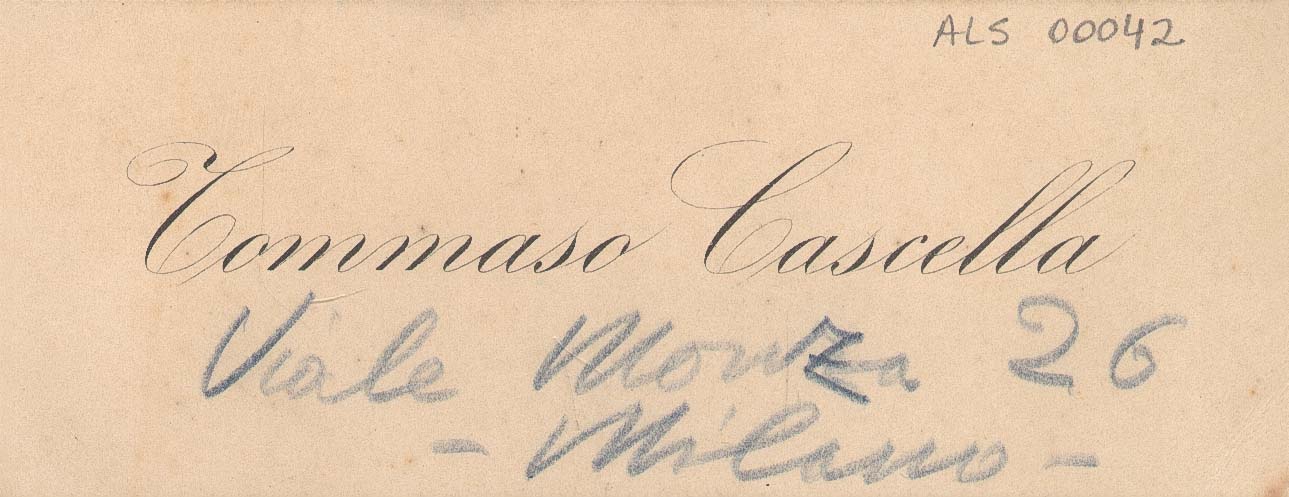 ALS 00042
Tommaso Cascella
Viale Monza 26
- Milano -